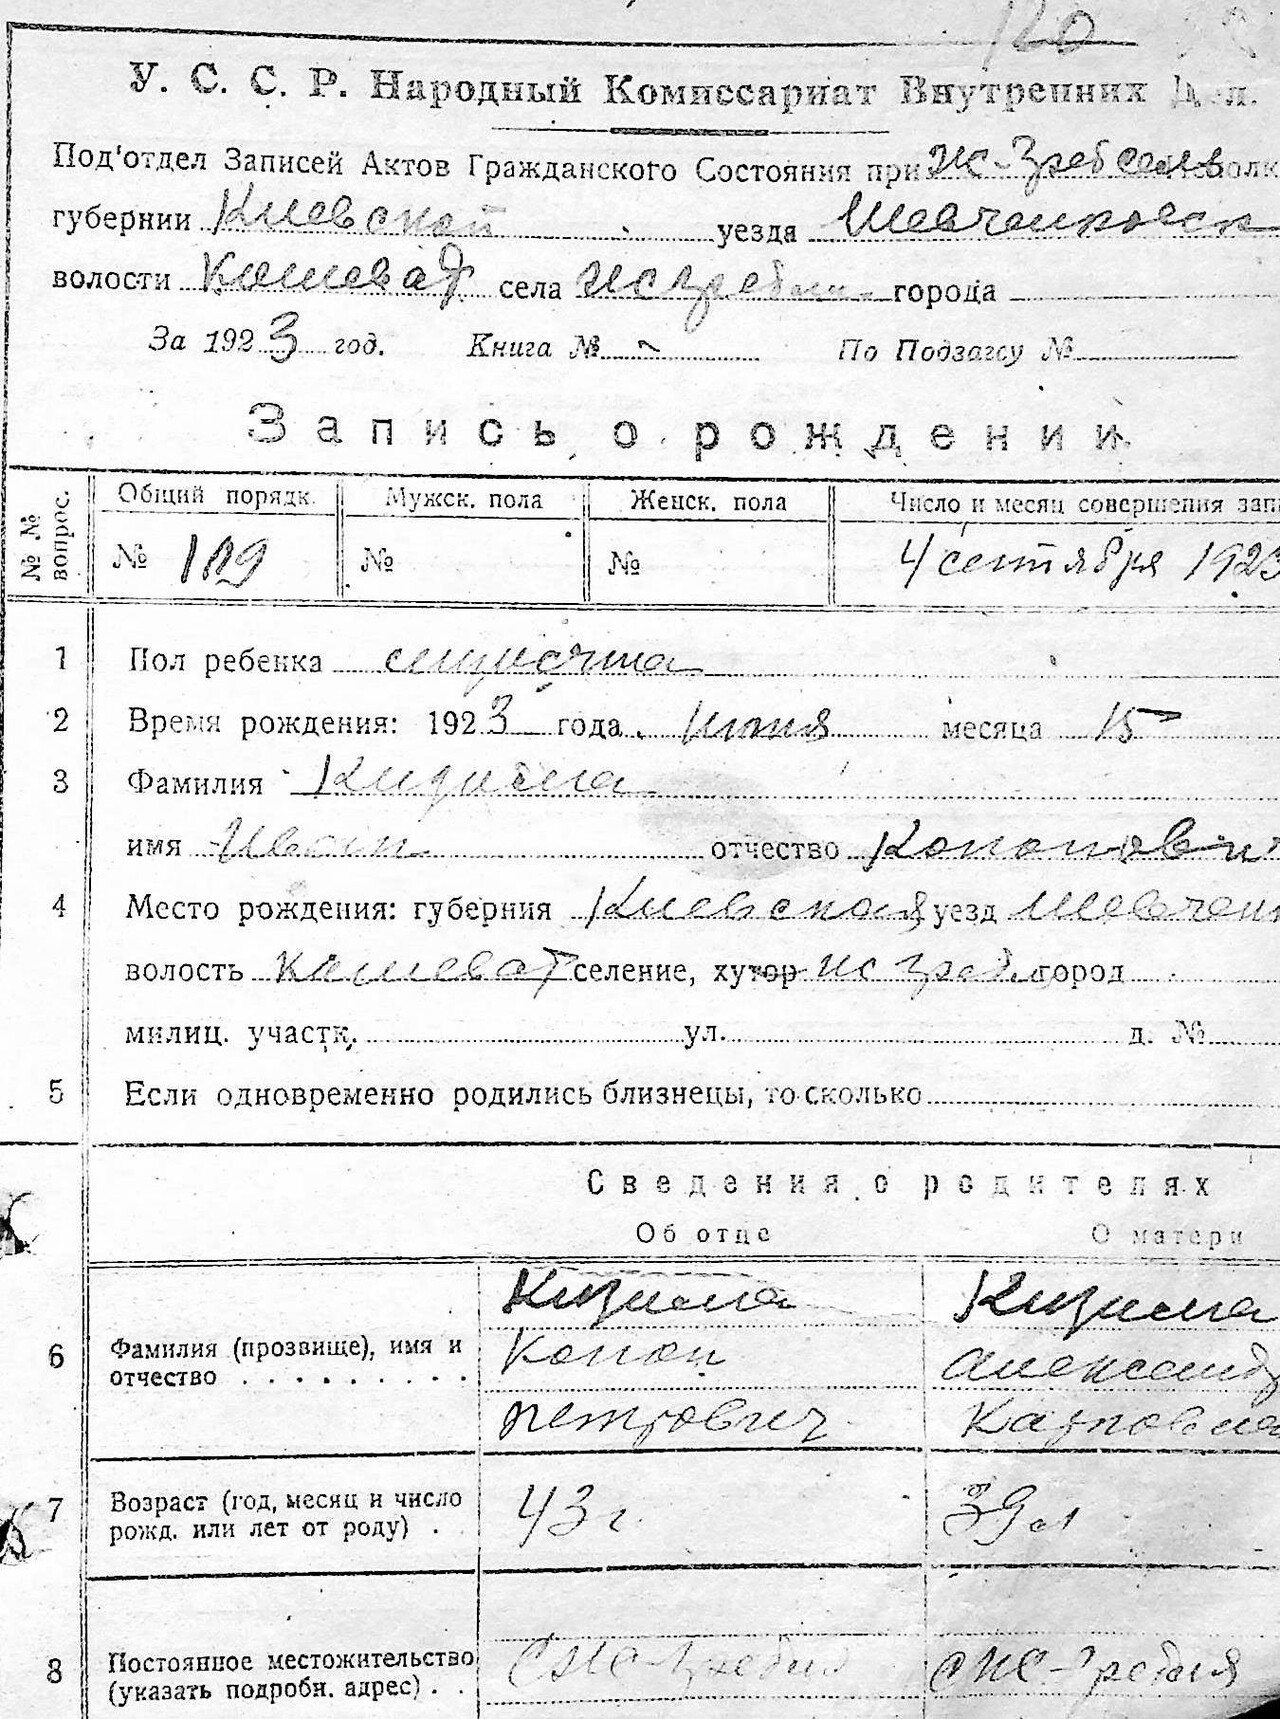 120
У. С. С. Р. Народный Комиссариат Внутренних Дел.
Под'отдел Записей Актов Гражданского Состояния при
губернии Киевской уезда Шевченковск
волости Кошеват села города
За 1923 год. Книга № По Подзагсу №
Запись о рождении
№ № вопрос. Общий порядк. Мужск. пола Женск. пола Число и месяц совершения зап
№ 119 № № 4 сентября 1923
1 Пол ребенка
2 Время рождения: 1923 года июня месяца 15
3 Фамилия Кизима
имя Иван отчество Кононович
4 Место рождения: губерния Киевская уезд Шевченк
волость Кошеват селение, хутор город
милиц. участк. ул. д. №
5 Если одновременно родились близнецы, то сколько
Сведения о родителях
Об отце О матери
Кизима Кизима
6 Фамилия (прозвище), имя и Конон Александ
отчество Петрович Карповна
7 Возраст (год, месяц и число 43 г. 39 л
рожд. или лет от роду)
8 Постоянное местожительство
(указать подробн. адрес)